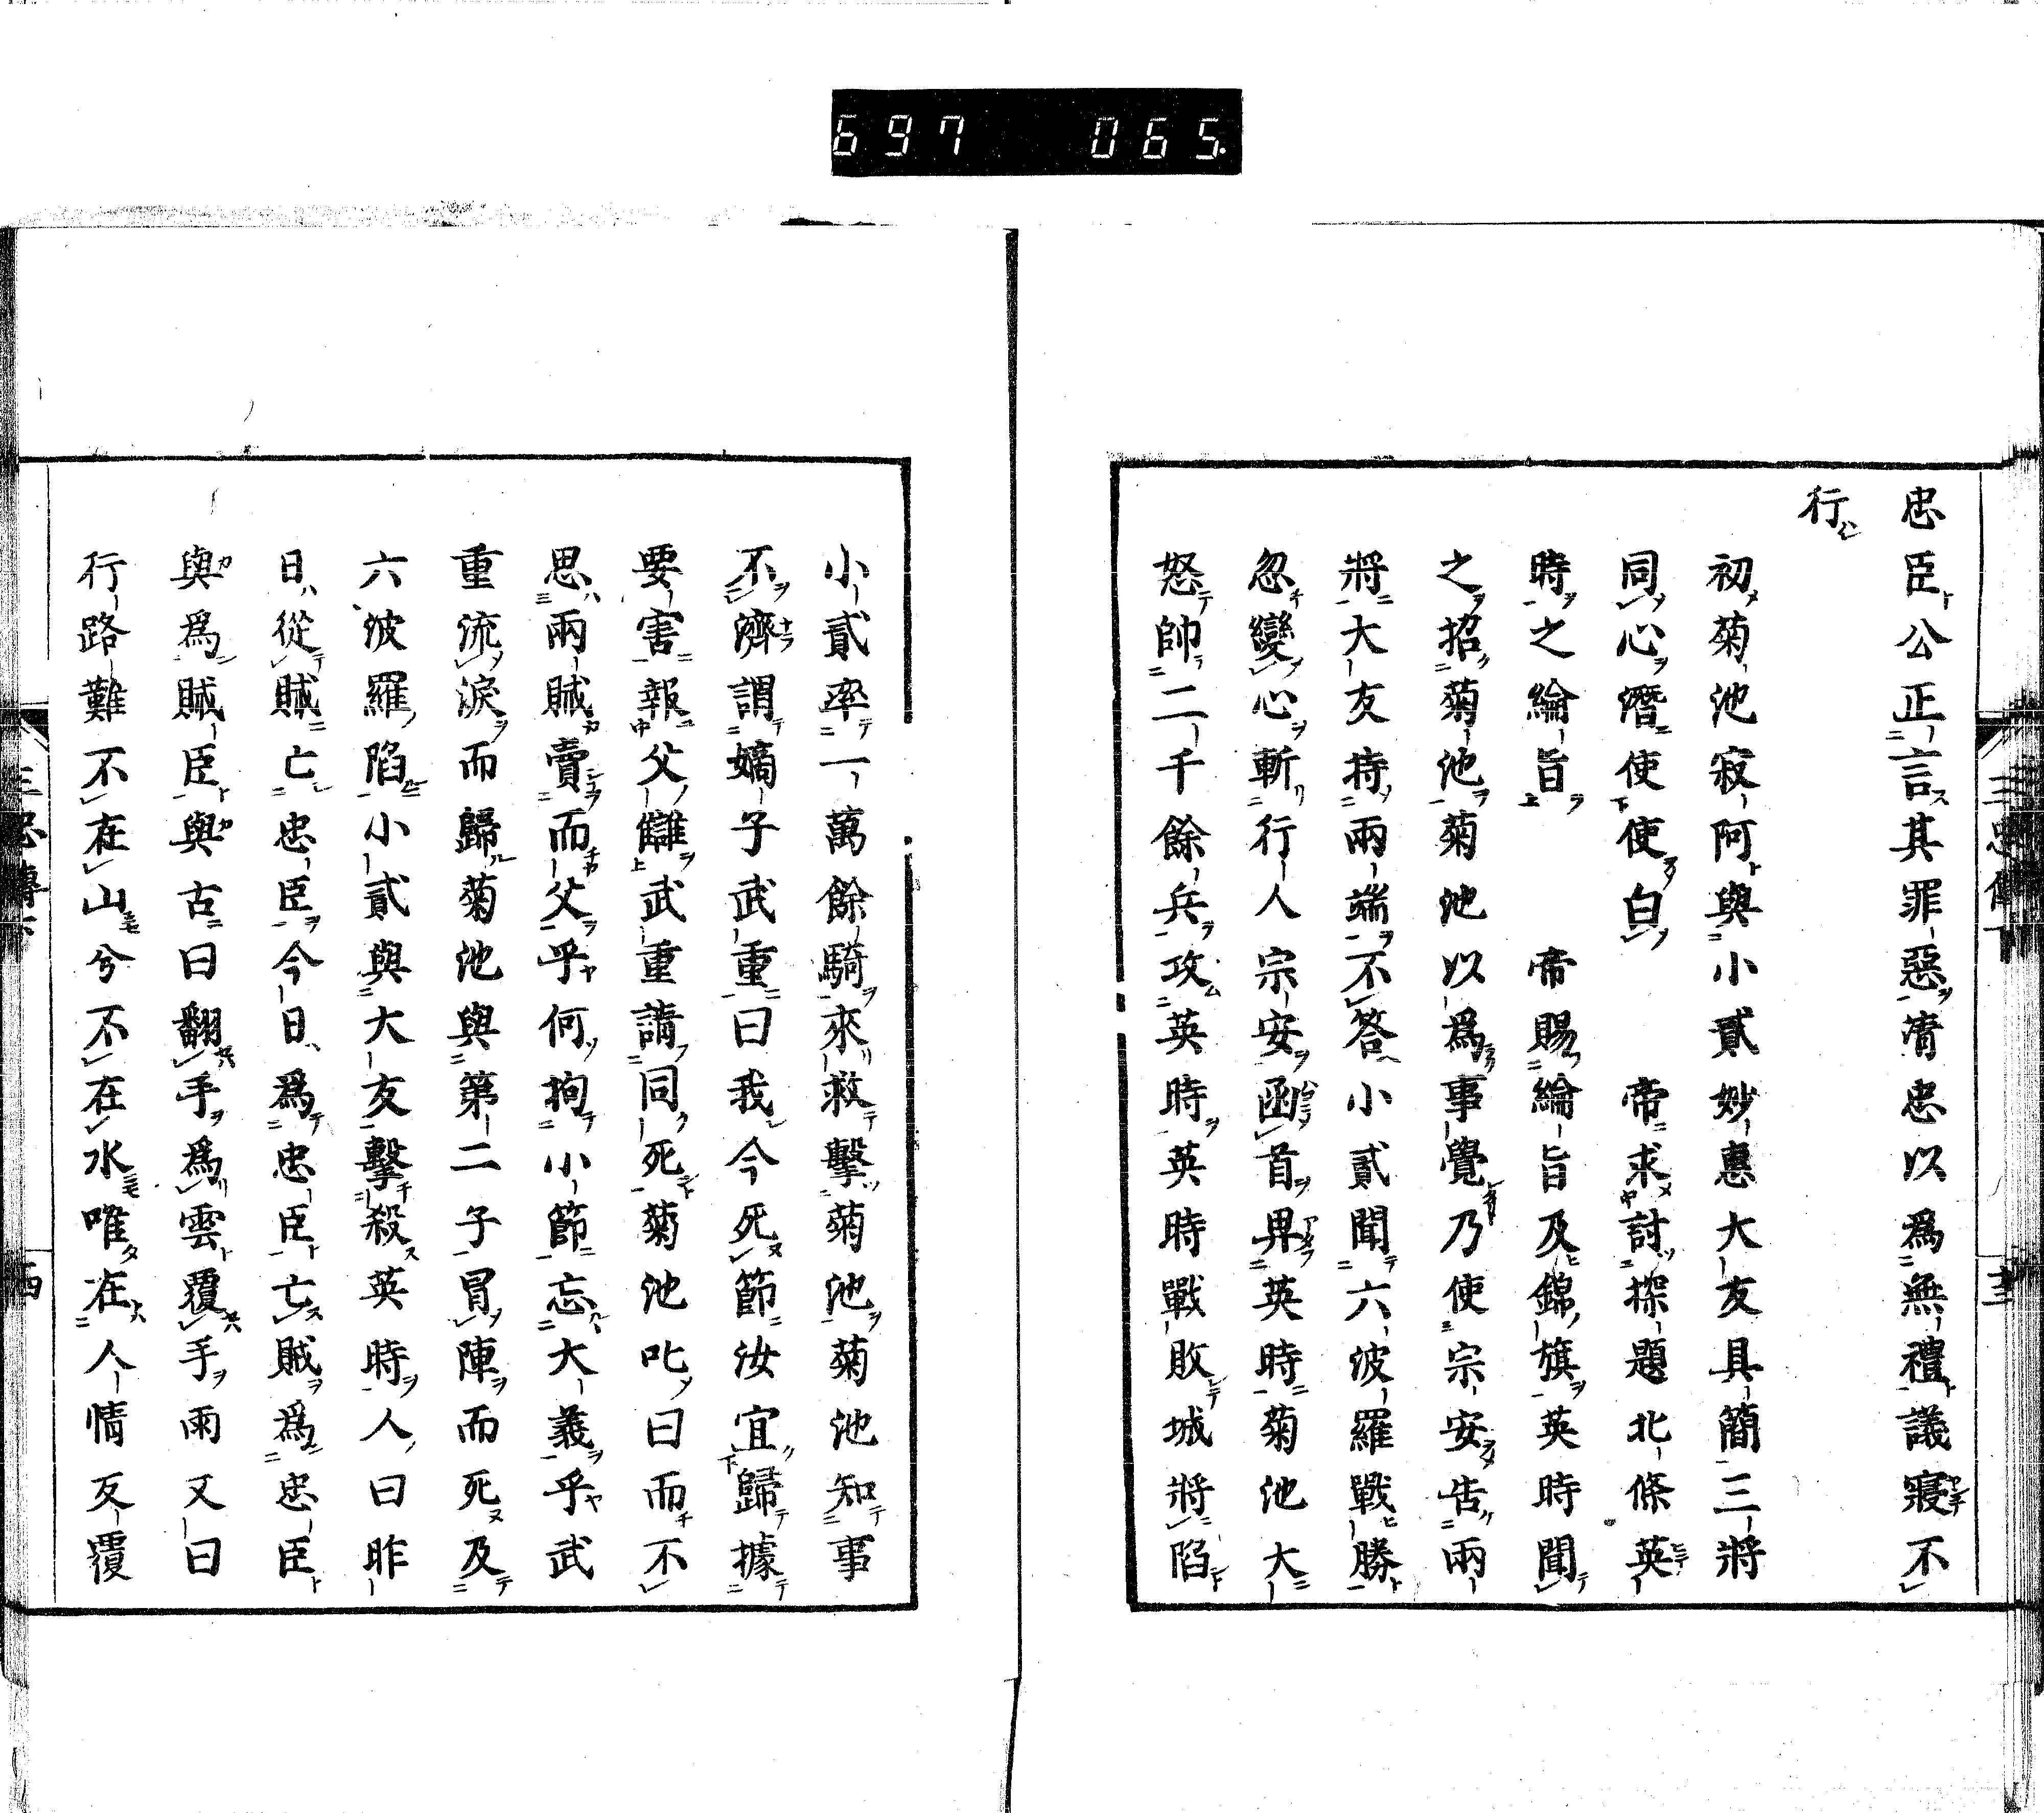 697 065
忠臣公正言其罪惡清忠以爲無禮議寢不
行
初菊池寂阿與小貳妙惠大友具簡三將
同心潛使使白 帝求討探題北條英
時之綸旨 帝賜綸旨及錦旗英時聞
之招菊池菊池以爲事覺乃使宗安告兩
將大友持兩端不答小貳聞六波羅戰勝
忽變心斬行人宗安函首畀英時菊池大
怒帥二千餘兵攻英時英時戰敗城將陷
小貳率一萬餘騎來救擊菊池菊池知事
不濟謂嫡子武重曰我今死節汝宜歸據
要害報父讎武重請同死菊池叱曰而不
思兩賊賣而父乎何拘小節忘大義乎武
重流淚而歸菊池與第二子冒陣而死及
六波羅陷小貳與大友擊殺英時人曰昨
日從賊亡忠臣今日爲忠臣亡賊爲忠臣
與爲賊臣與古曰翻手爲雲覆手雨又曰
行路難不在山兮不在水唯在人情反覆